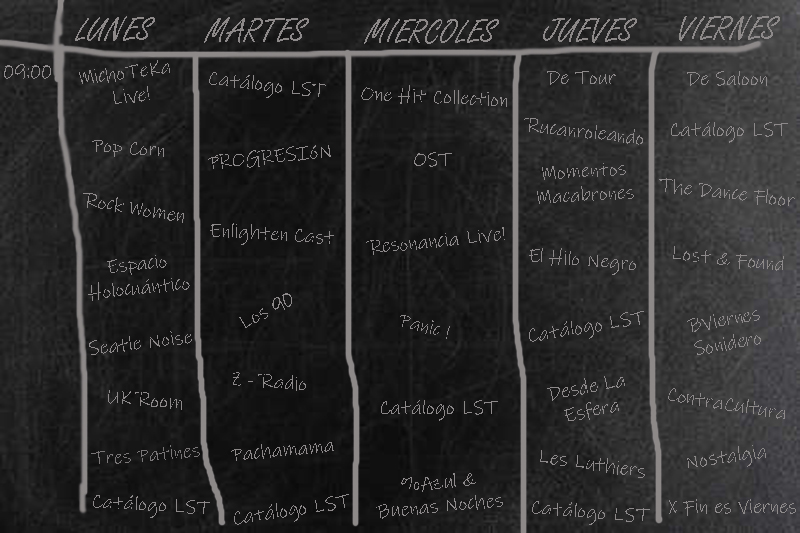 LUNES MARTES MIERCOLES JUEVES VIERNES
09:00
MichoTeKa
Live!
Pop Corn
Rock Women
Espacio
Holocuántico
Seatle Noise
UK Room
Tres Patines
Catálogo LST
Catálogo LST
PROGRESIóN
Enlighten Cast
Los 90
Z - Radio
Pachamama
Catálogo LST
One Hit Collection
OST
Resonancia Live!
Panic !
Catálogo LST
%Azul &
Buenas Noches
De Tour
Rucanroleando
Momentos
Macabrones
El Hilo Negro
Catálogo LST
Desde La
Esfera
Les Luthiers
Catálogo LST
De Saloon
Catálogo LST
The Dance Floor
Lost & Found
BViernes
Sonidero
ContraCultura
Nostalgia
X Fin es Viernes